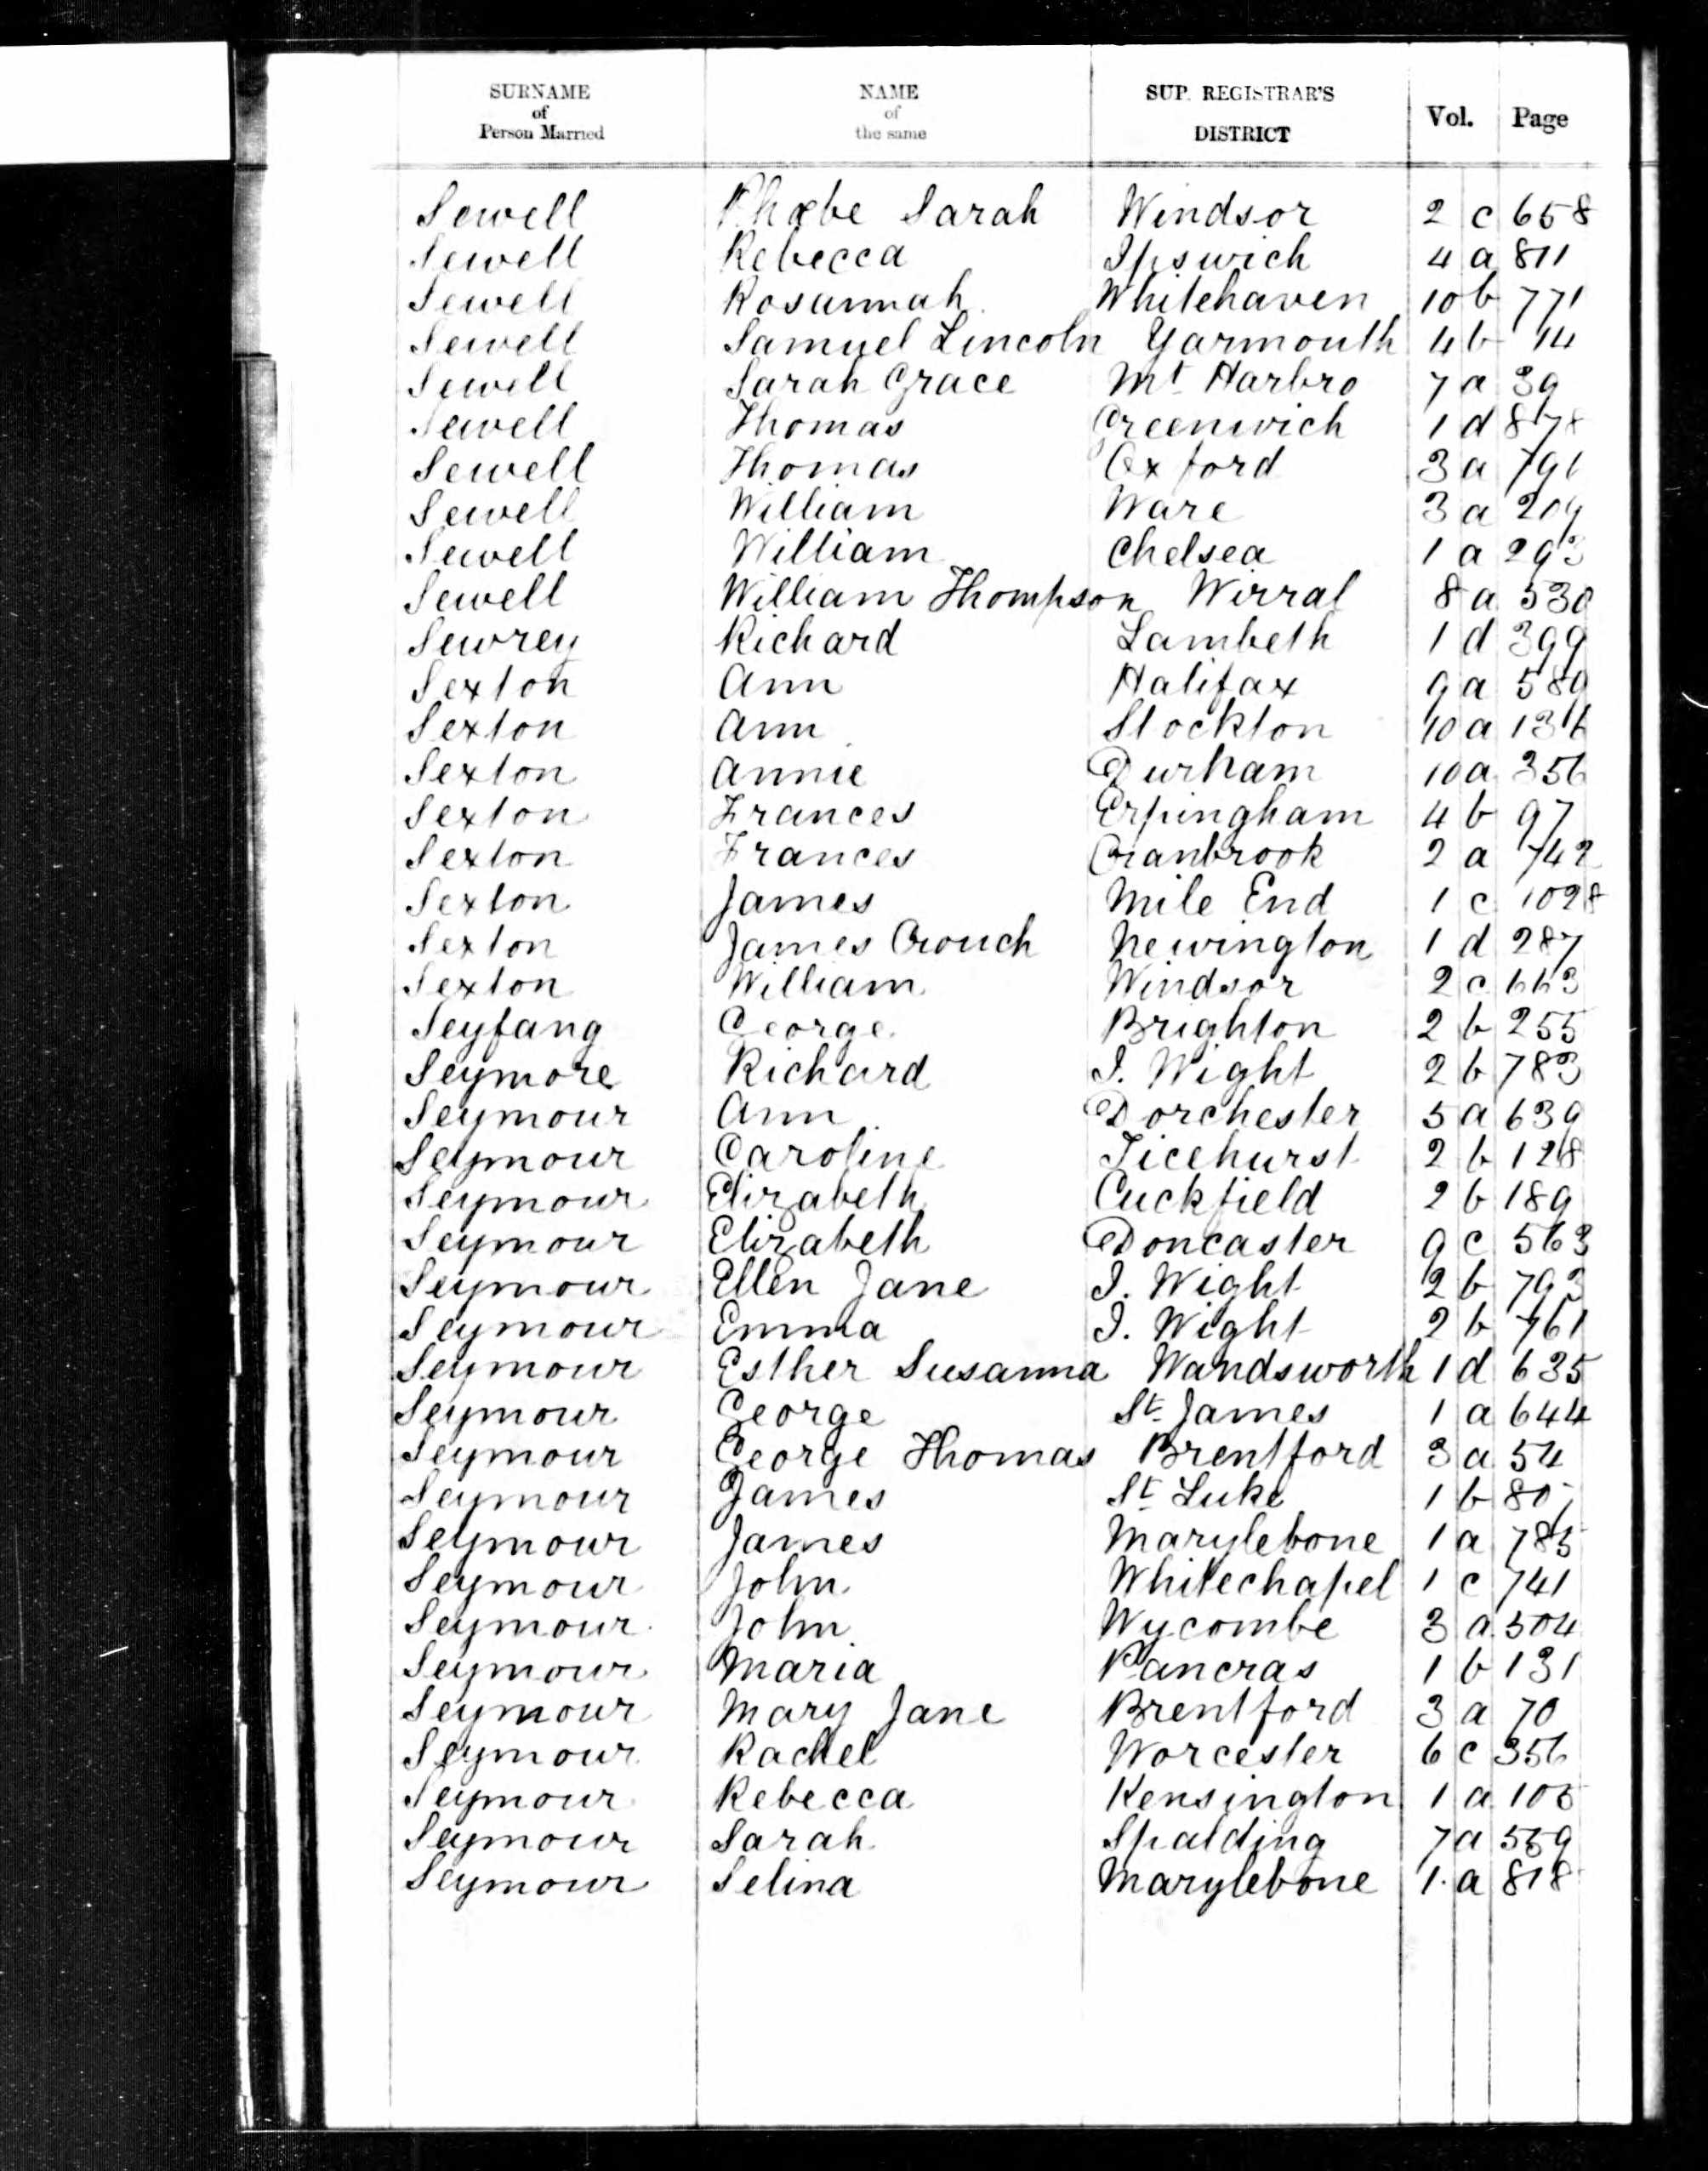 SURNAME of Person Married NAME of the same SUP. REGISTRAR'S DISTRICT Vol. Page
Sewell Phœbe Sarah Windsor 2 c 658
Sewell Rebecca Ipswich 4 a 811
Sewell Rosannah Whitehaven 10 b 771
Sewell Samuel Lincoln Yarmouth 4 b 14
Sewell Sarah Grace Mt Harbro 7 a 39
Sewell Thomas Greenwich 1 d 878
Sewell Thomas Oxford 3 a 791
Sewell William Ware 3 a 209
Sewell William Chelsea 1 a 293
Sewell William Thompson Wirral 8 a 530
Sewrey Richard Lambeth 1 d 399
Sexton Ann Halifax 9 a 589
Sexton Ann Stockton 10 a 136
Sexton Annie Durham 10 a 356
Sexton Frances Erpingham 4 b 97
Sexton Frances Cranbrook 2 a 742
Sexton James Mile End 1 c 1028
Sexton James Crouch Newington 1 d 287
Sexton William Windsor 2 c 663
Seyfang George Brighton 2 b 255
Seymore Richard I. Wight 2 b 783
Seymour Ann Dorchester 5 a 639
Seymour Caroline Ticehurst 2 b 128
Seymour Elizabeth Cuckfield 2 b 189
Seymour Elizabeth Doncaster 9 c 563
Seymour Ellen Jane I. Wight 2 b 793
Seymour Emma I. Wight 2 b 761
Seymour Esther Susanna Wandsworth 1 d 635
Seymour George St. James 1 a 644
Seymour George Thomas Brentford 3 a 54
Seymour James St Luke 1 b
Seymour James Marylebone 1 a 785
Seymour John Whitechapel 1 c 741
Seymour John Wycombe 3 a 504
Seymour Maria Pancras 1 b 131
Seymour Mary Jane Brentford 3 a 70
Seymour Rachel Worcester 6 c 356
Seymour Rebecca Kensington 1 a
Seymour Sarah Spalding 7 a 559
Seymour Selina Marylebone 1 a 818